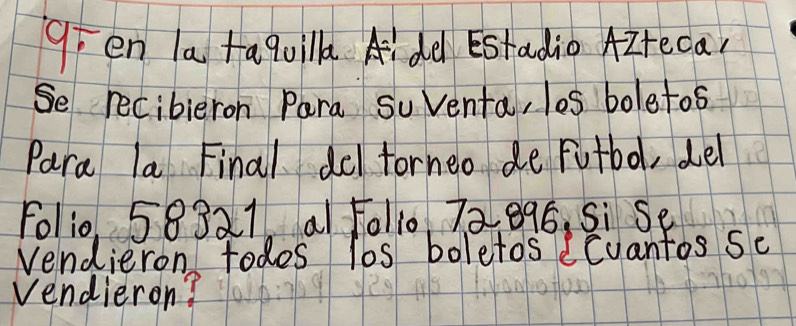 9.- en la taquilla A-1 del Estadio Azteca,
Se recibieron Para su venta, los boletos
Para la Final del torneo de Futbol, del
Folio, 58321 al Folio, 72896, Si Se
vendieron todos los boletos ¿Cuantos Se
vendieron?